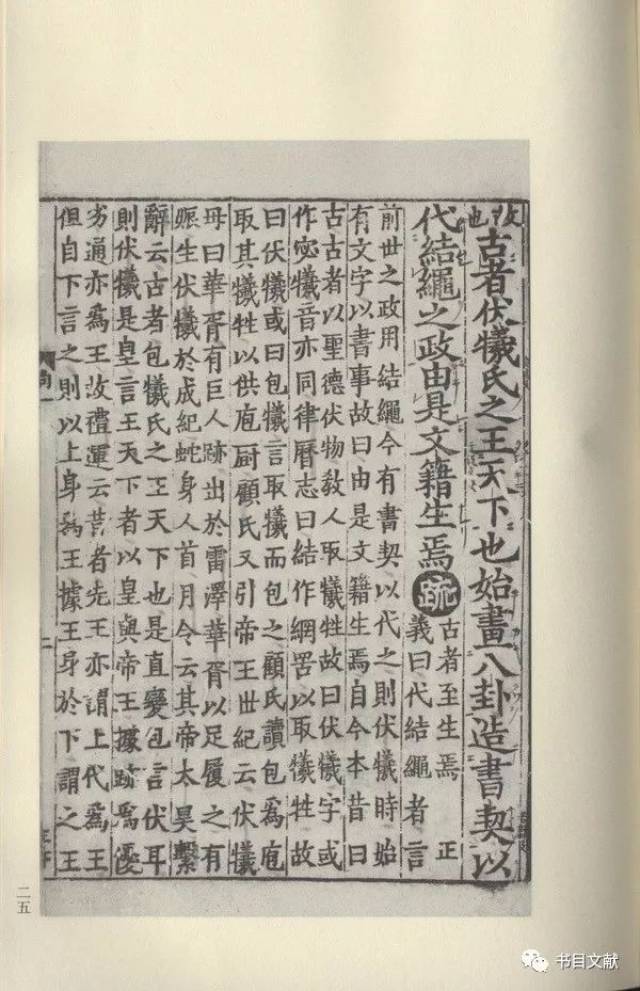 也古者伏犧氏之王天下也始畫八卦造書契以
代結繩之政由是文籍生焉疏古者至生焉 正
義曰代結繩者言
前世之政用結繩今有書契以代之則伏犧時始
有文字以書事故曰由是文籍生焉自今本昔曰
古古者以聖德伏物教人取犧牲故曰伏犧字或
作宓犧音亦同律曆志曰結作網罟以取犧牲故
曰伏犧或曰包犧言取犧而包之顧氏讀包為庖
取其犧牲以供庖厨顧氏又引帝王世紀云伏犧
母曰華胥有巨人跡出於雷澤華胥以足履之有
娠生伏犧於成紀蛇身人首月令云其帝太昊繫
辭云古者包犧氏之王天下也是直變包言伏耳
則伏犧是皇言王天下者以皇與帝王據跡為優
劣通亦為王故禮運云昔者先王亦謂上代為王
但自下言之則以上身為王據王身於下謂之王
二五
书目文献